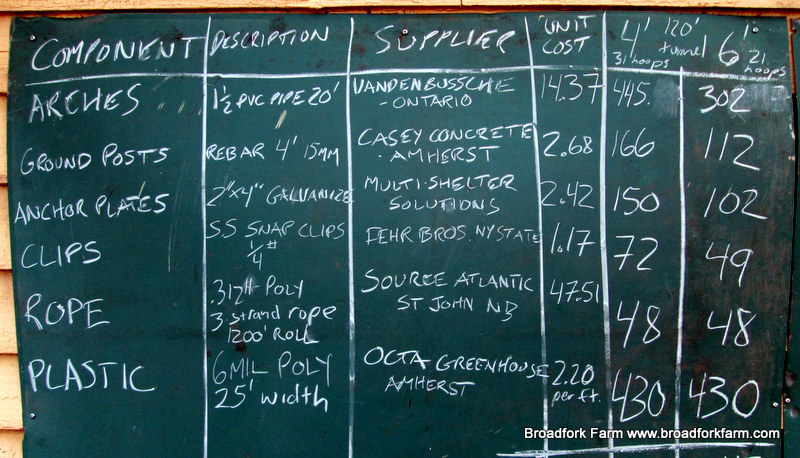 COMPONENT DESCRIPTION SUPPLIER UNIT COST 4' 31 hoops 120' tunnel 6' 21 hoops
ARCHES 1 1/2 PVC PIPE 20' VANDENBUSSCHE - ONTARIO 14.37 445. 302
GROUND POSTS REBAR 4' 15MM CASEY CONCRETE - AMHERST 2.68 166 112
ANCHOR PLATES 2"x4" GALVANIZE MULTI-SHELTER SOLUTIONS 2.42 150 102
CLIPS SS SNAP CLIPS 1/4" FEHR BROS. NY STATE 1.17 72 49
ROPE .312" POLY 3 strand rope 1200' ROLL SOURCE ATLANTIC ST JOHN NB 47.51 48 48
PLASTIC 6 MIL POLY 25' width OCTA GREENHOUSE AMHERST 2.20 per ft. 430 430
Broadfork Farm www.broadforkfarm.com